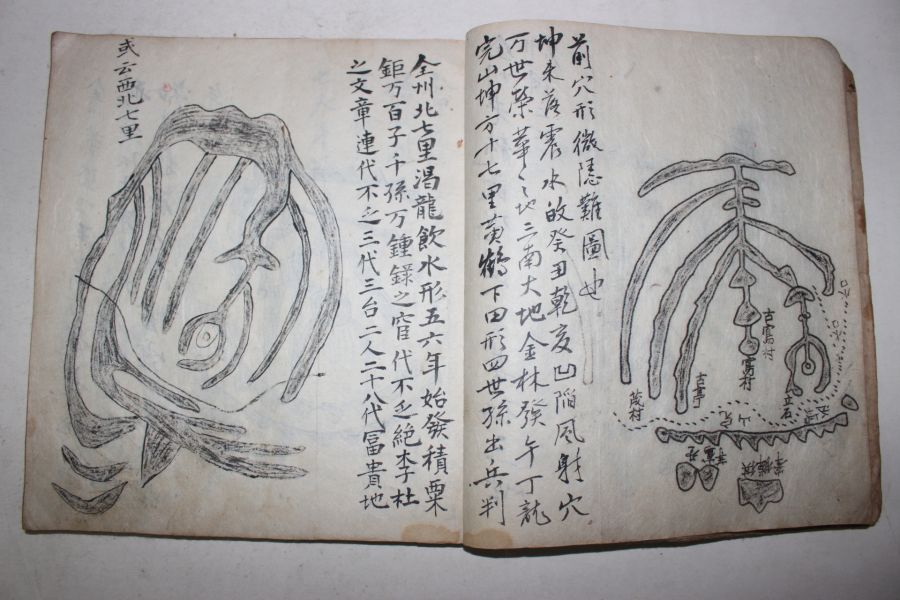 前穴形微隱難圖也
坤未落震水的癸丑乾亥凹陷風射穴
万世榮華之地三南大地金林發午丁龍
完山坤方十七里黃鶴下田形四世孫出兵判
全州北七里渴龍飮水形五六年始發積粟
鉅万百子千孫万鍾錄之官代不乏絶李杜
之文章連代不乏三代三台二人二十八代冨貴地
或云西北七里
古寫村
寫村
立石
古亭
茂村
山完